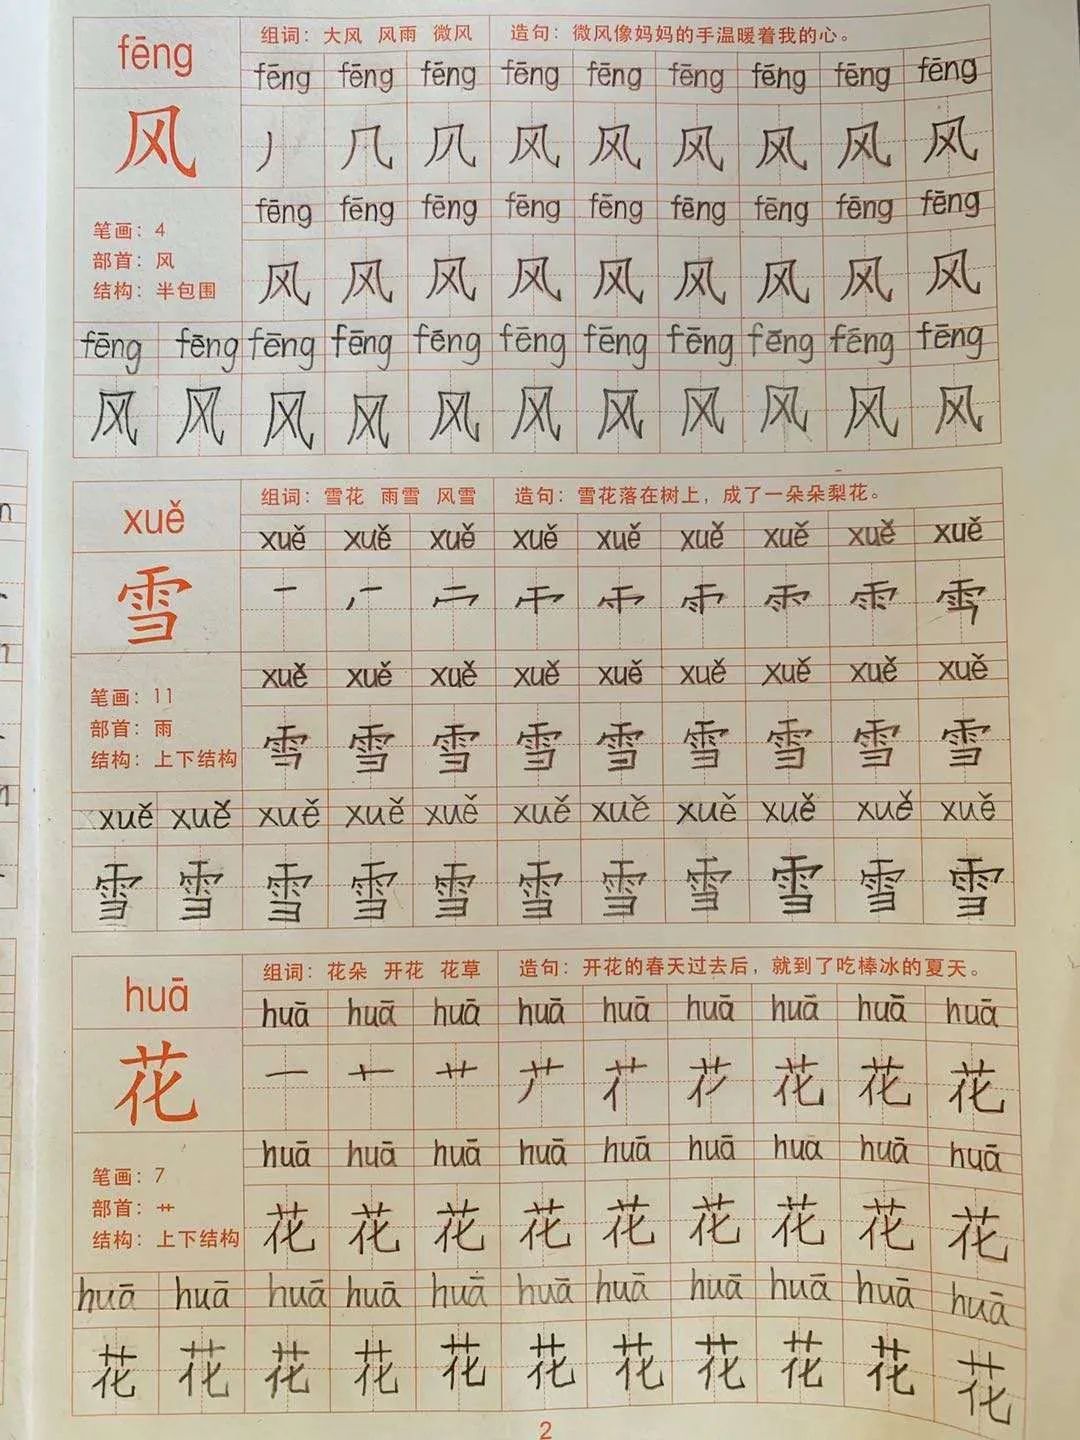 fēng
组词：大风 风雨 微风 造句：微风像妈妈的手温暖着我的心。
fēng fēng fēng fēng fēng fēng fēng fēng fēng
风
丿 几 风 风 风 风 风 风
笔画：4
部首：风
结构：半包围
fēng fēng fēng fēng fēng fēng fēng fēng fēng
风 风 风 风 风 风 风 风 风
fēng fēng fēng fēng fēng fēng fēng fēng fēng fēng fēng
风 风 风 风 风 风 风 风 风 风 风
xuě
组词：雪花 雨雪 风雪 造句：雪花落在树上，成了一朵朵梨花。
xuě xuě xuě xuě xuě xuě xuě xuě xuě
雪
一
笔画：11
部首：雨
结构：上下结构
xuě xuě xuě xuě xuě xuě xuě xuě xuě
雪 雪 雪 雪 雪 雪 雪 雪
xuě xuě xuě xuě xuě xuě xuě xuě xuě xuě xuě
雪 雪 雪 雪 雪 雪 雪 雪 雪 雪 雪
huā
组词：花朵 开花 花草 造句：开花的春天过去后，就到了吃棒冰的夏天。
huā huā huā huā huā huā huā huā huā
花
一 十 艹 花 花 花
笔画：7
部首：艹
结构：上下结构
huā huā huā huā huā huā huā huā huā
花 花 花 花 花 花 花 花 花
huā huā huā huā huā huā huā huā huā huā huā
花 花 花 花 花 花 花 花 花 花 花
2